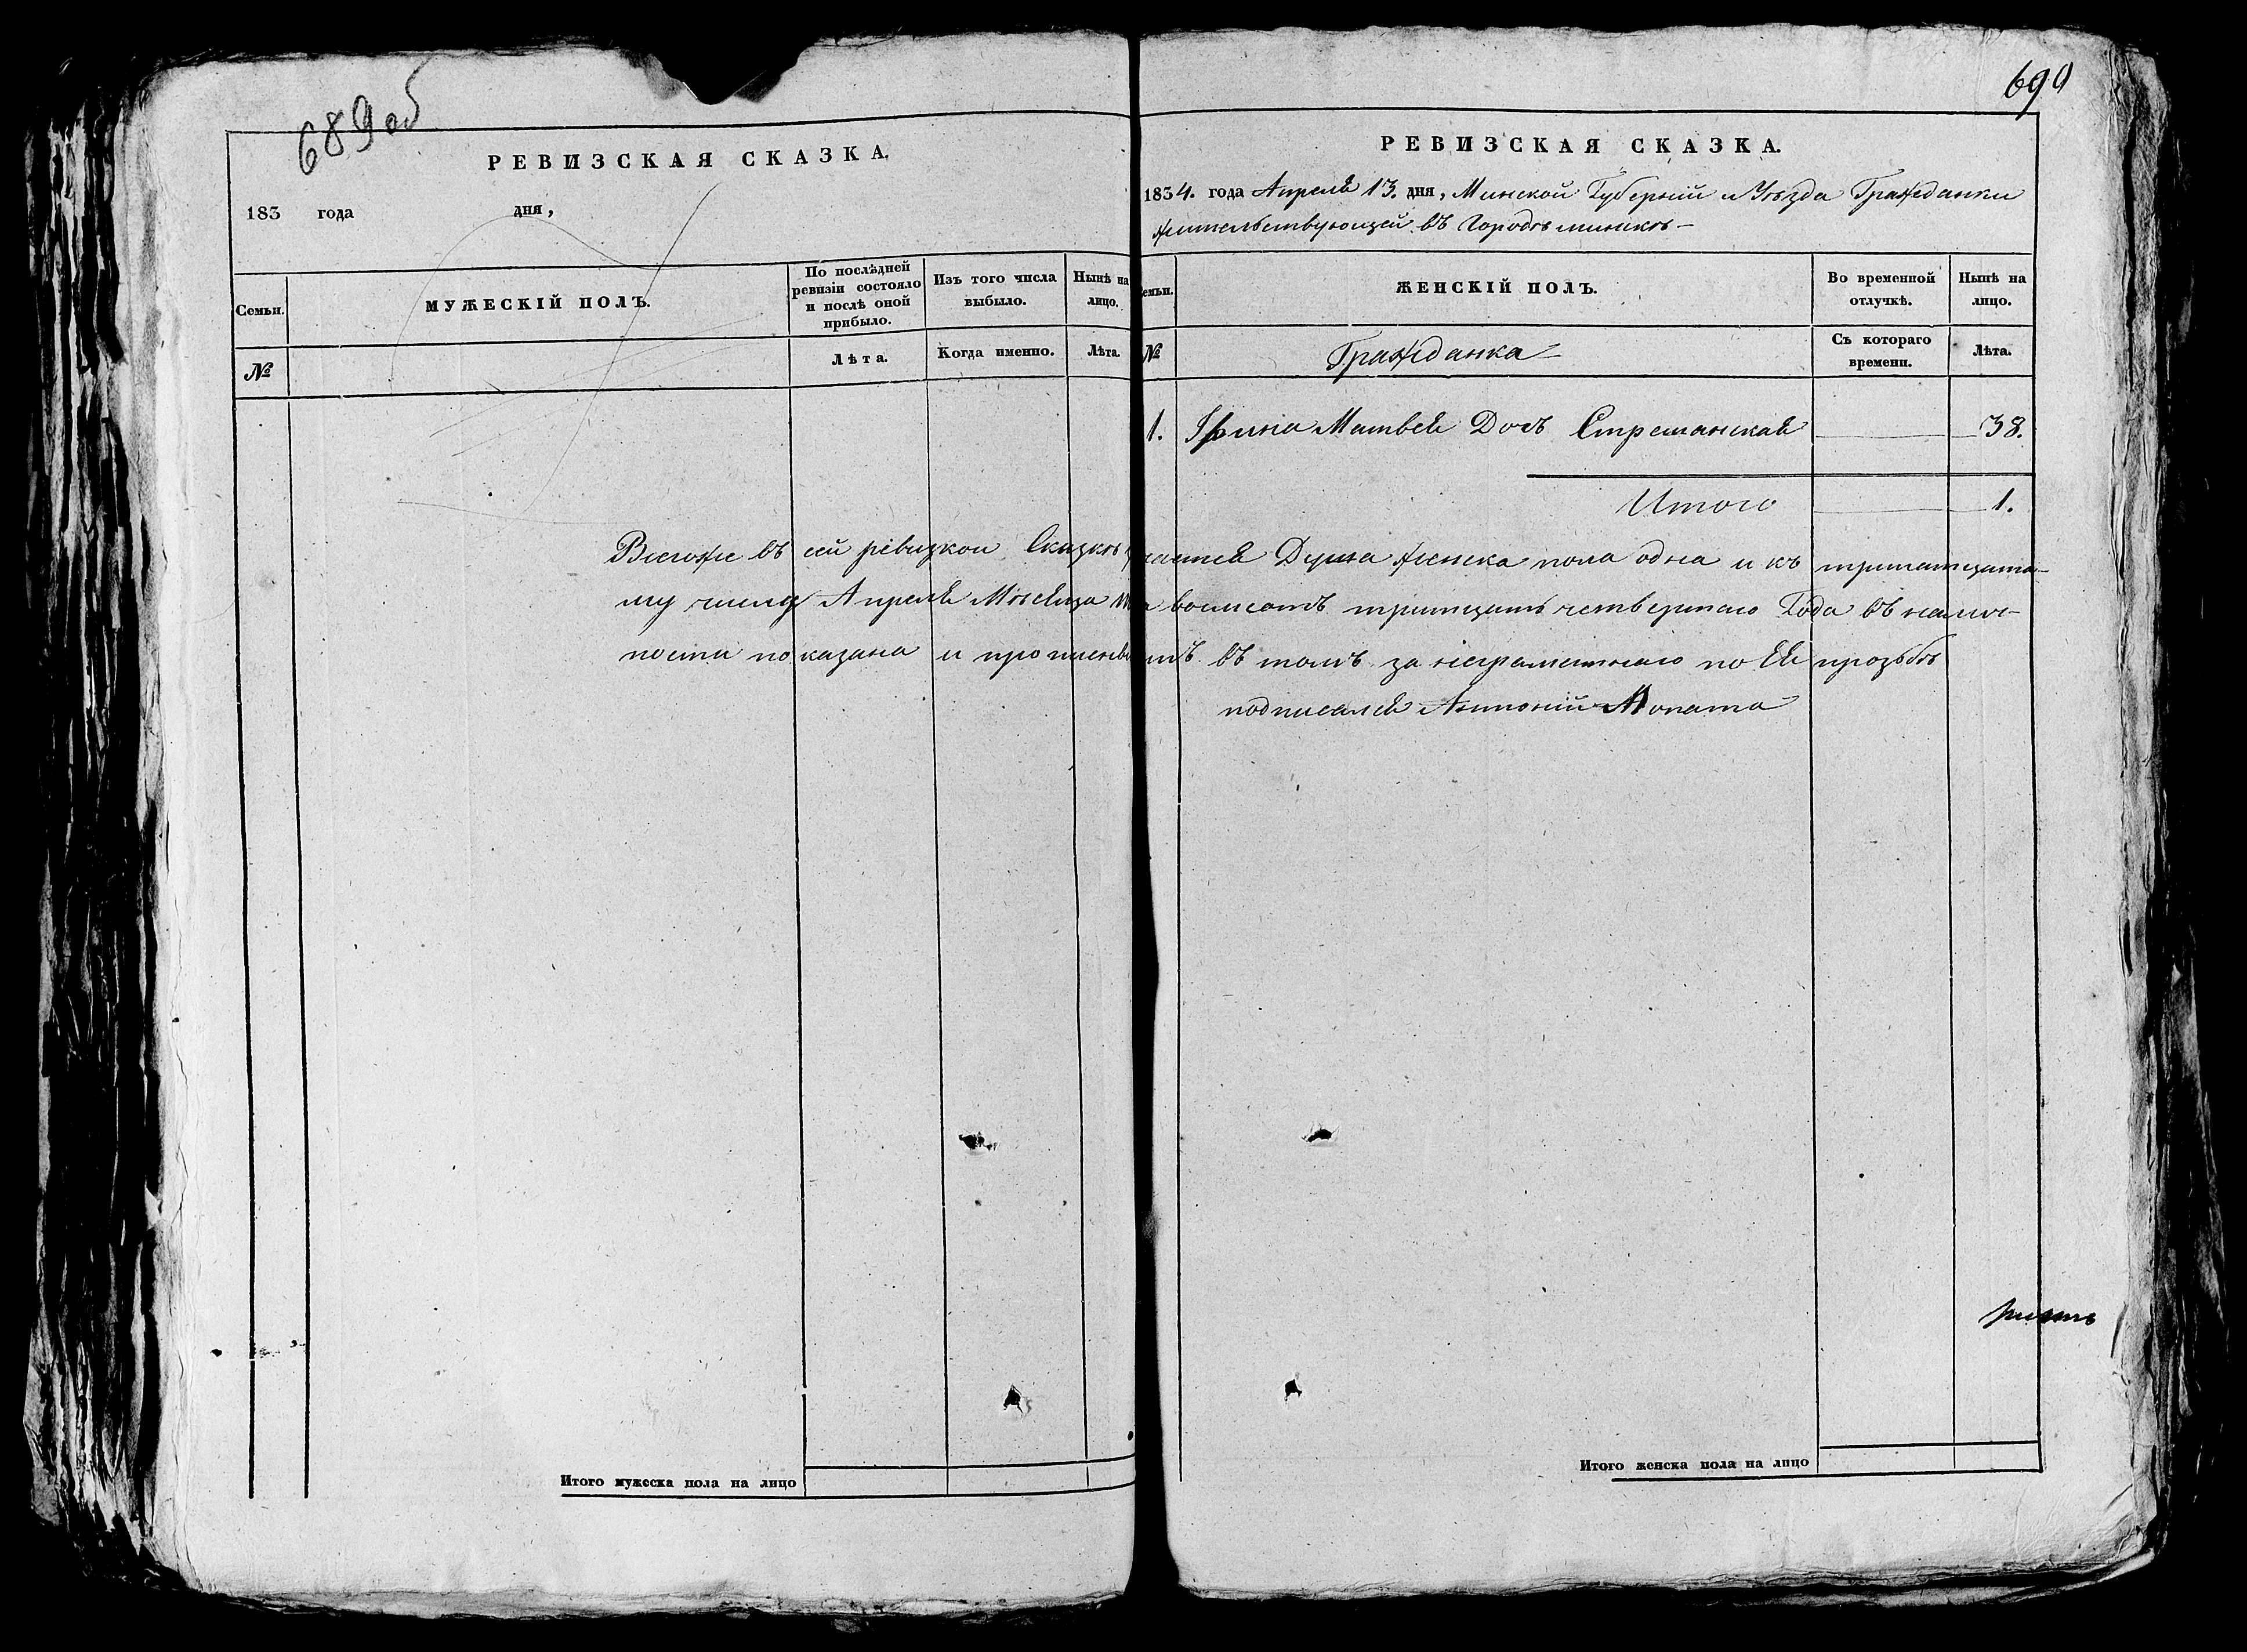 689 об
РЕВИЗСКАЯ СКАЗКА.
183 года дня,
Семьи.
МУЖЕСКІЙ ПОЛЪ.
По послѣдней ревизіи состояло и послѣ оной прибыло.
Изъ того числа выбыло.
Нынѣ на лицо.
№
Лѣта.
Когда именно.
Лѣта.
Итого мужеска пола на лицо
690
РЕВИЗСКАЯ СКАЗКА.
1834. года Апреля 13. дня, Минской Губерніи и Уѣзда Гражданки
жительствующей въ Городѣ минскѣ
Семьи.
ЖЕНСКІЙ ПОЛЪ.
Во временной отлучкѣ.
Нынѣ на лицо.
№
Гражданка
Съ котораго времени.
Лѣта.
1. Ірина Матвея Дочь 38.
Итого 1.
Всегоже въ сей ревизкои Сказкѣ Душа женска пола одна и къ тринатцато-
му числу Апреля Мѣсяца восмсотъ тритцать четвертаго Года въ налич-
ности показана и въ томъ за неграметнаго по Ея прозьбѣ
подписался Антоній
Итого женска пола на лицо